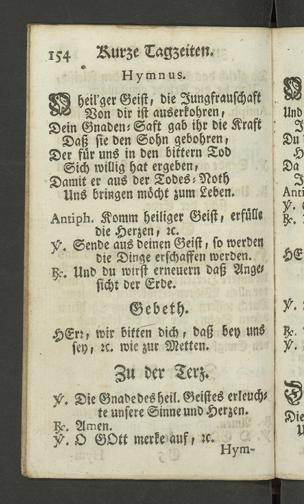 154 Kurze Tagzeiten.
Hymnus.
O heil'ger Geist, die Jungfrauschaft
Von dir ist auserkohren,
Dein Gnaden-Saft gab ihr die Kraft
Daß sie den Sohn gebohren,
Der für uns in den bittern Tod
Sich willig hat ergeben,
Damit er aus der Todes-Noth
Uns bringen möcht zum Leben.
Antiph. Komm heiliger Geist, erfülle
die Herzen, ꝛc.
℣. Sende aus deinen Geist, so werden
die Dinge erschaffen werden.
℞. Und du wirst erneuern daß Ange-
sicht der Erde.
Gebeth.
HErr, wir bitten dich, daß bey uns
sey, ꝛc. wie zur Metten.
Zu der Terz.
℣. Die Gnade des heil. Geistes erleuch-
te unsere Sinne und Herzen.
℞. Amen.
℣. O GOtt merke auf, ꝛc.
Hym-